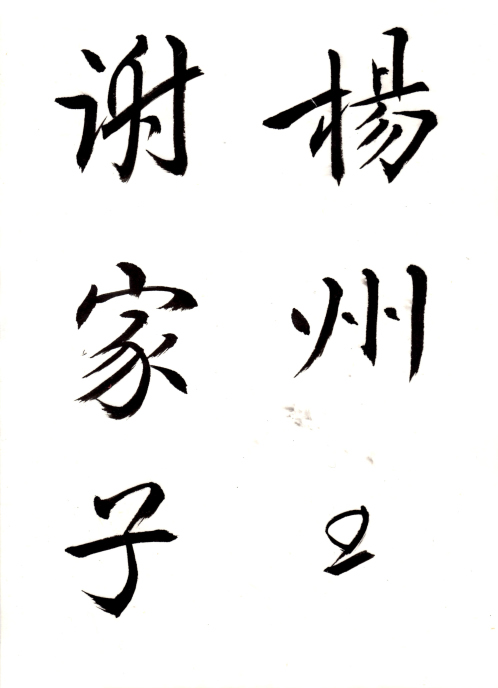 楊州
谢家子